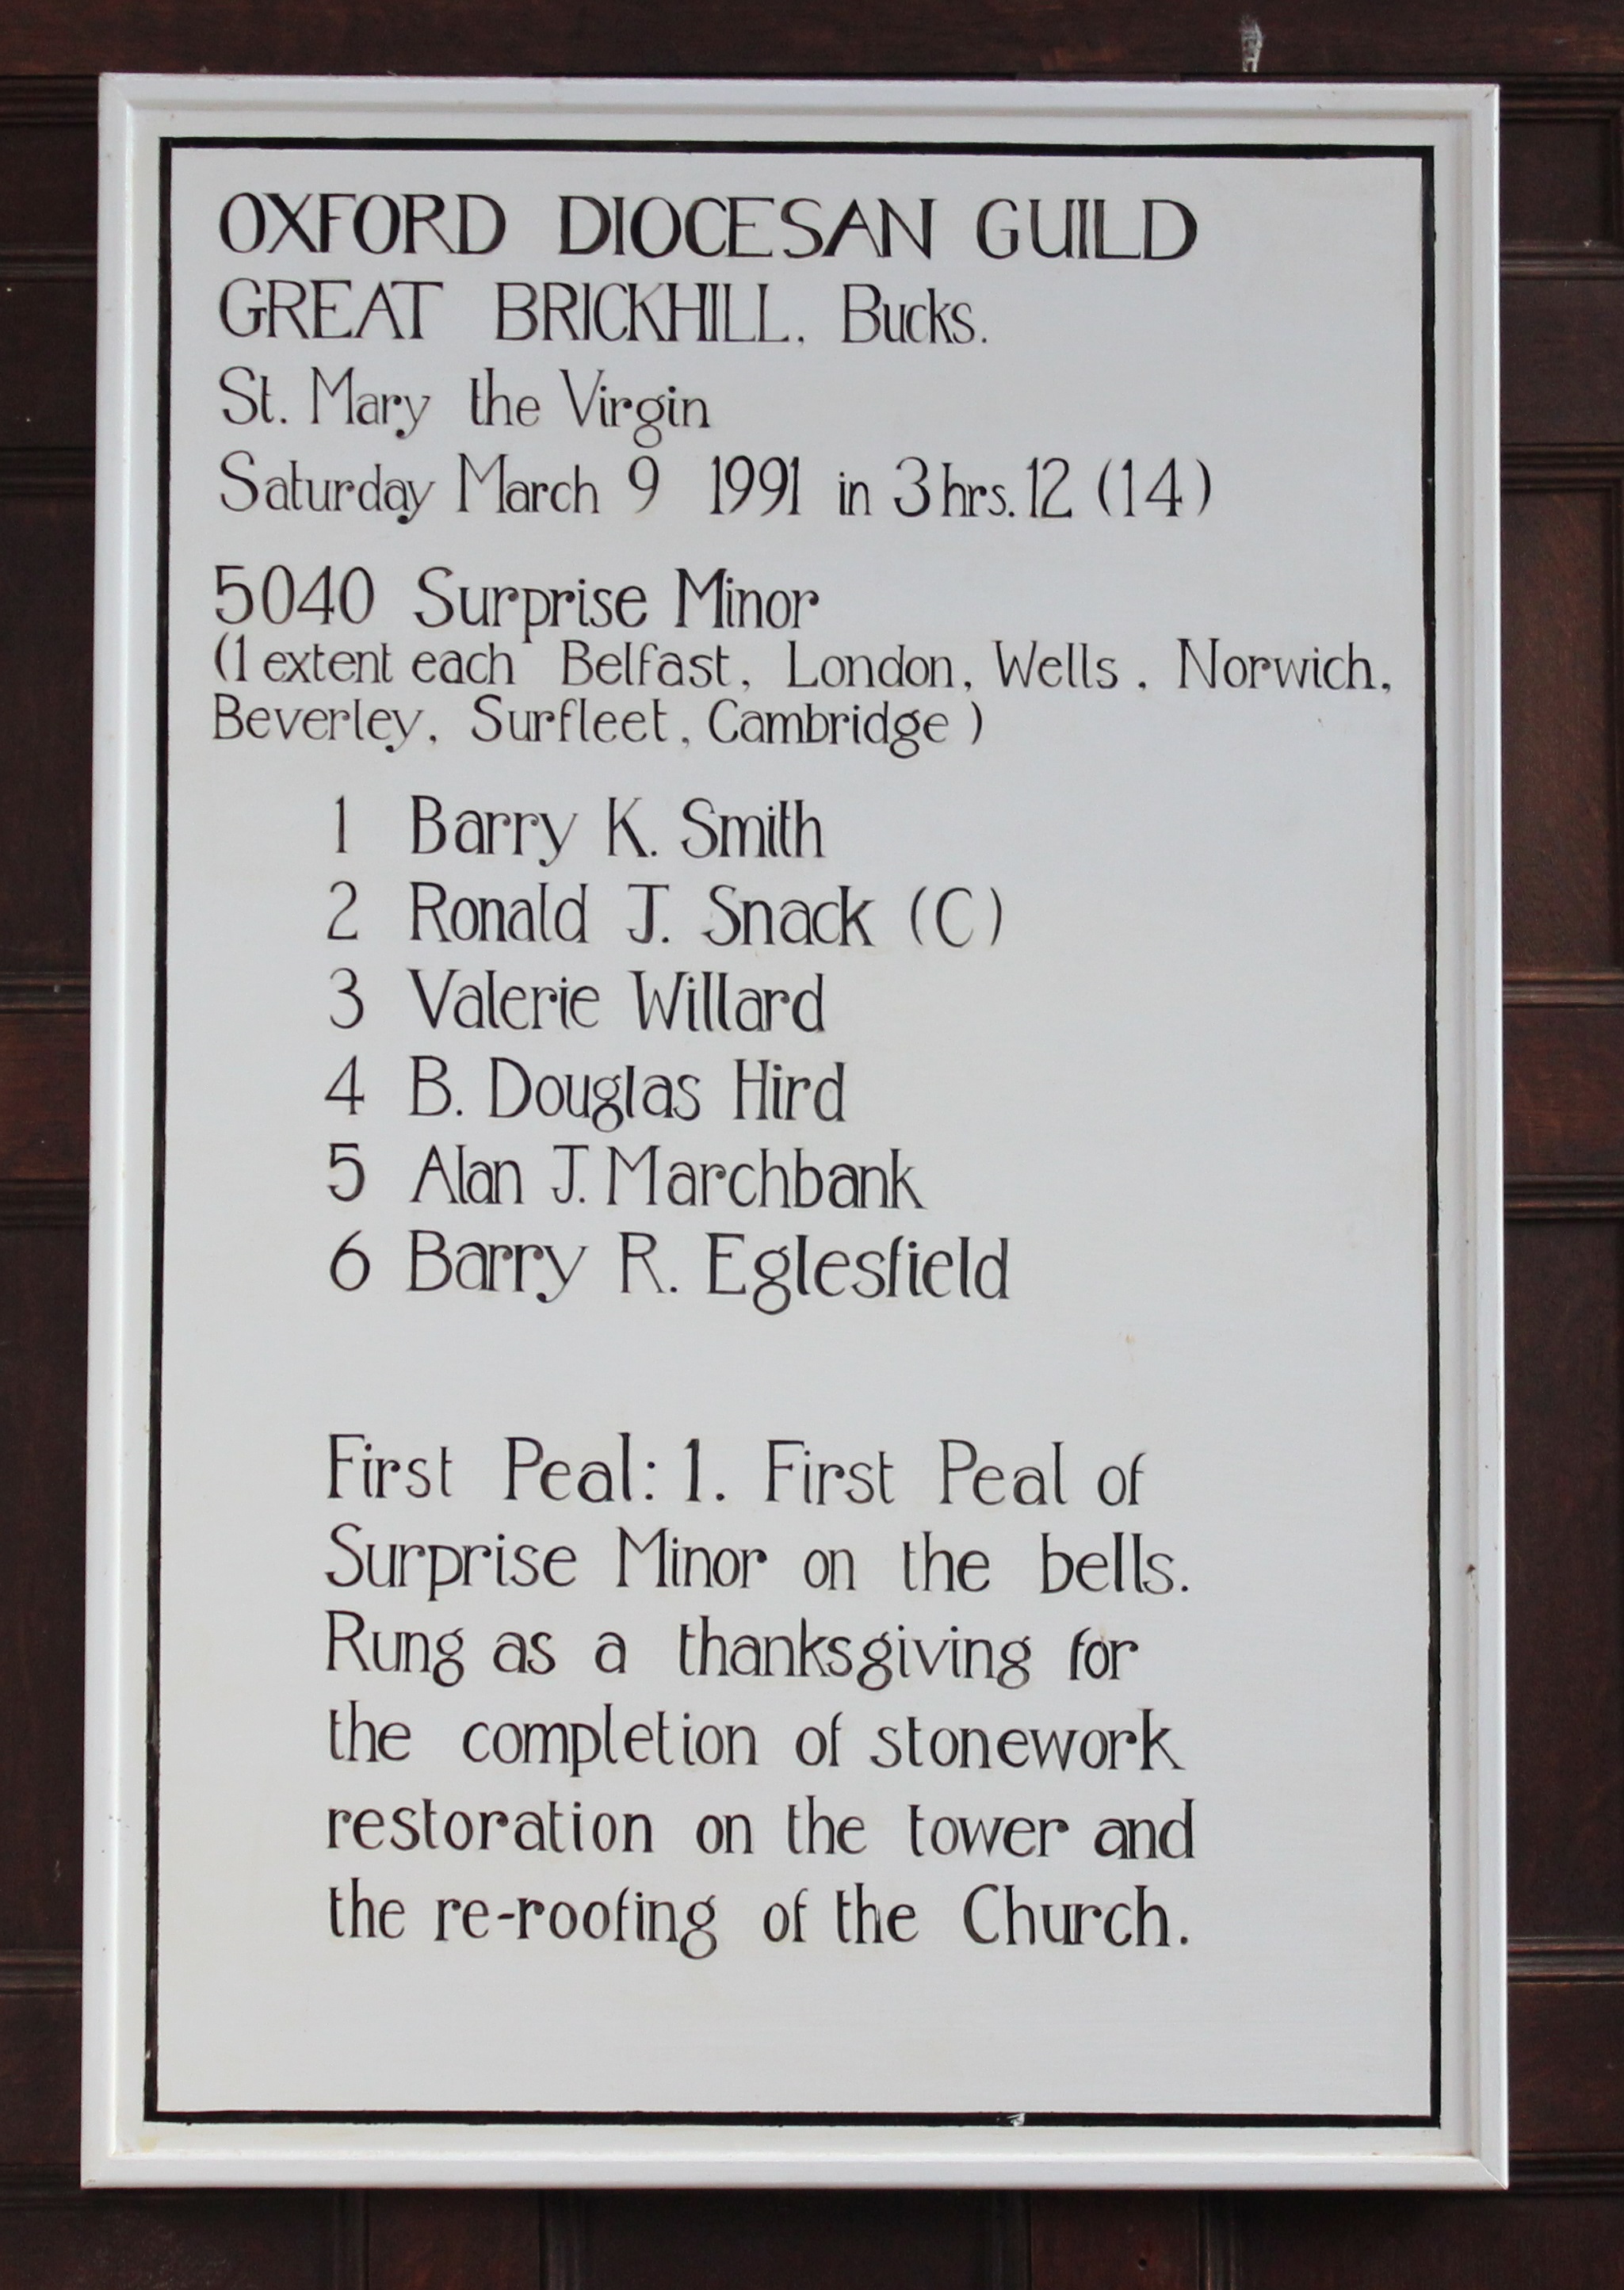 OXFORD DIOCESAN GUILD
GREAT BRICKHILL, Bucks.
St. Mary the Virgin
Saturday March 9 1991 in 3 hrs. 12 (14)
5040 Surprise Minor
(1 extent each Belfast, London, Wells, Norwich,
Beverley, Surfleet, Cambridge)
1 Barry K. Smith
2 Ronald J. Snack (C)
3 Valerie Willard
4 B. Douglas Hird
5 Alan J. Marchbank
6 Barry R. Eglesfield
First Peal: 1. First Peal of
Surprise Minor on the bells.
Rung as a thanksgiving for
the completion of stonework
restoration on the tower and
the re-roofing of the Church.